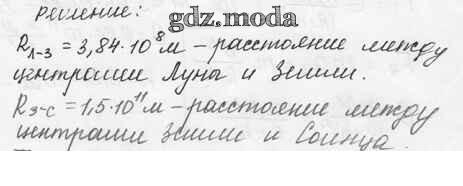 решение:
gdz.moda
R л-з = 3,84·10⁸м – расстояние между
центрами Луны и Земли.
R з-с = 1,5·10¹¹м – расстояние между
центрами Земли и Солнца.